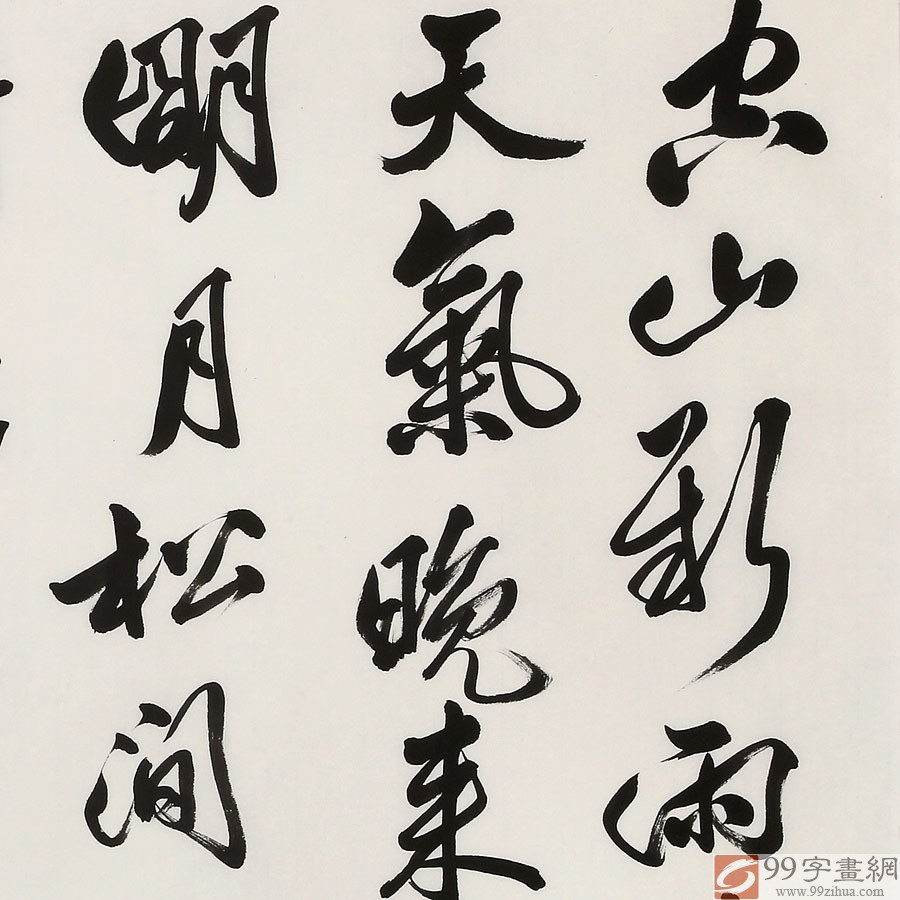 空山新雨
天氣晚来
明月松間
99字畫網
www.99zihua.com